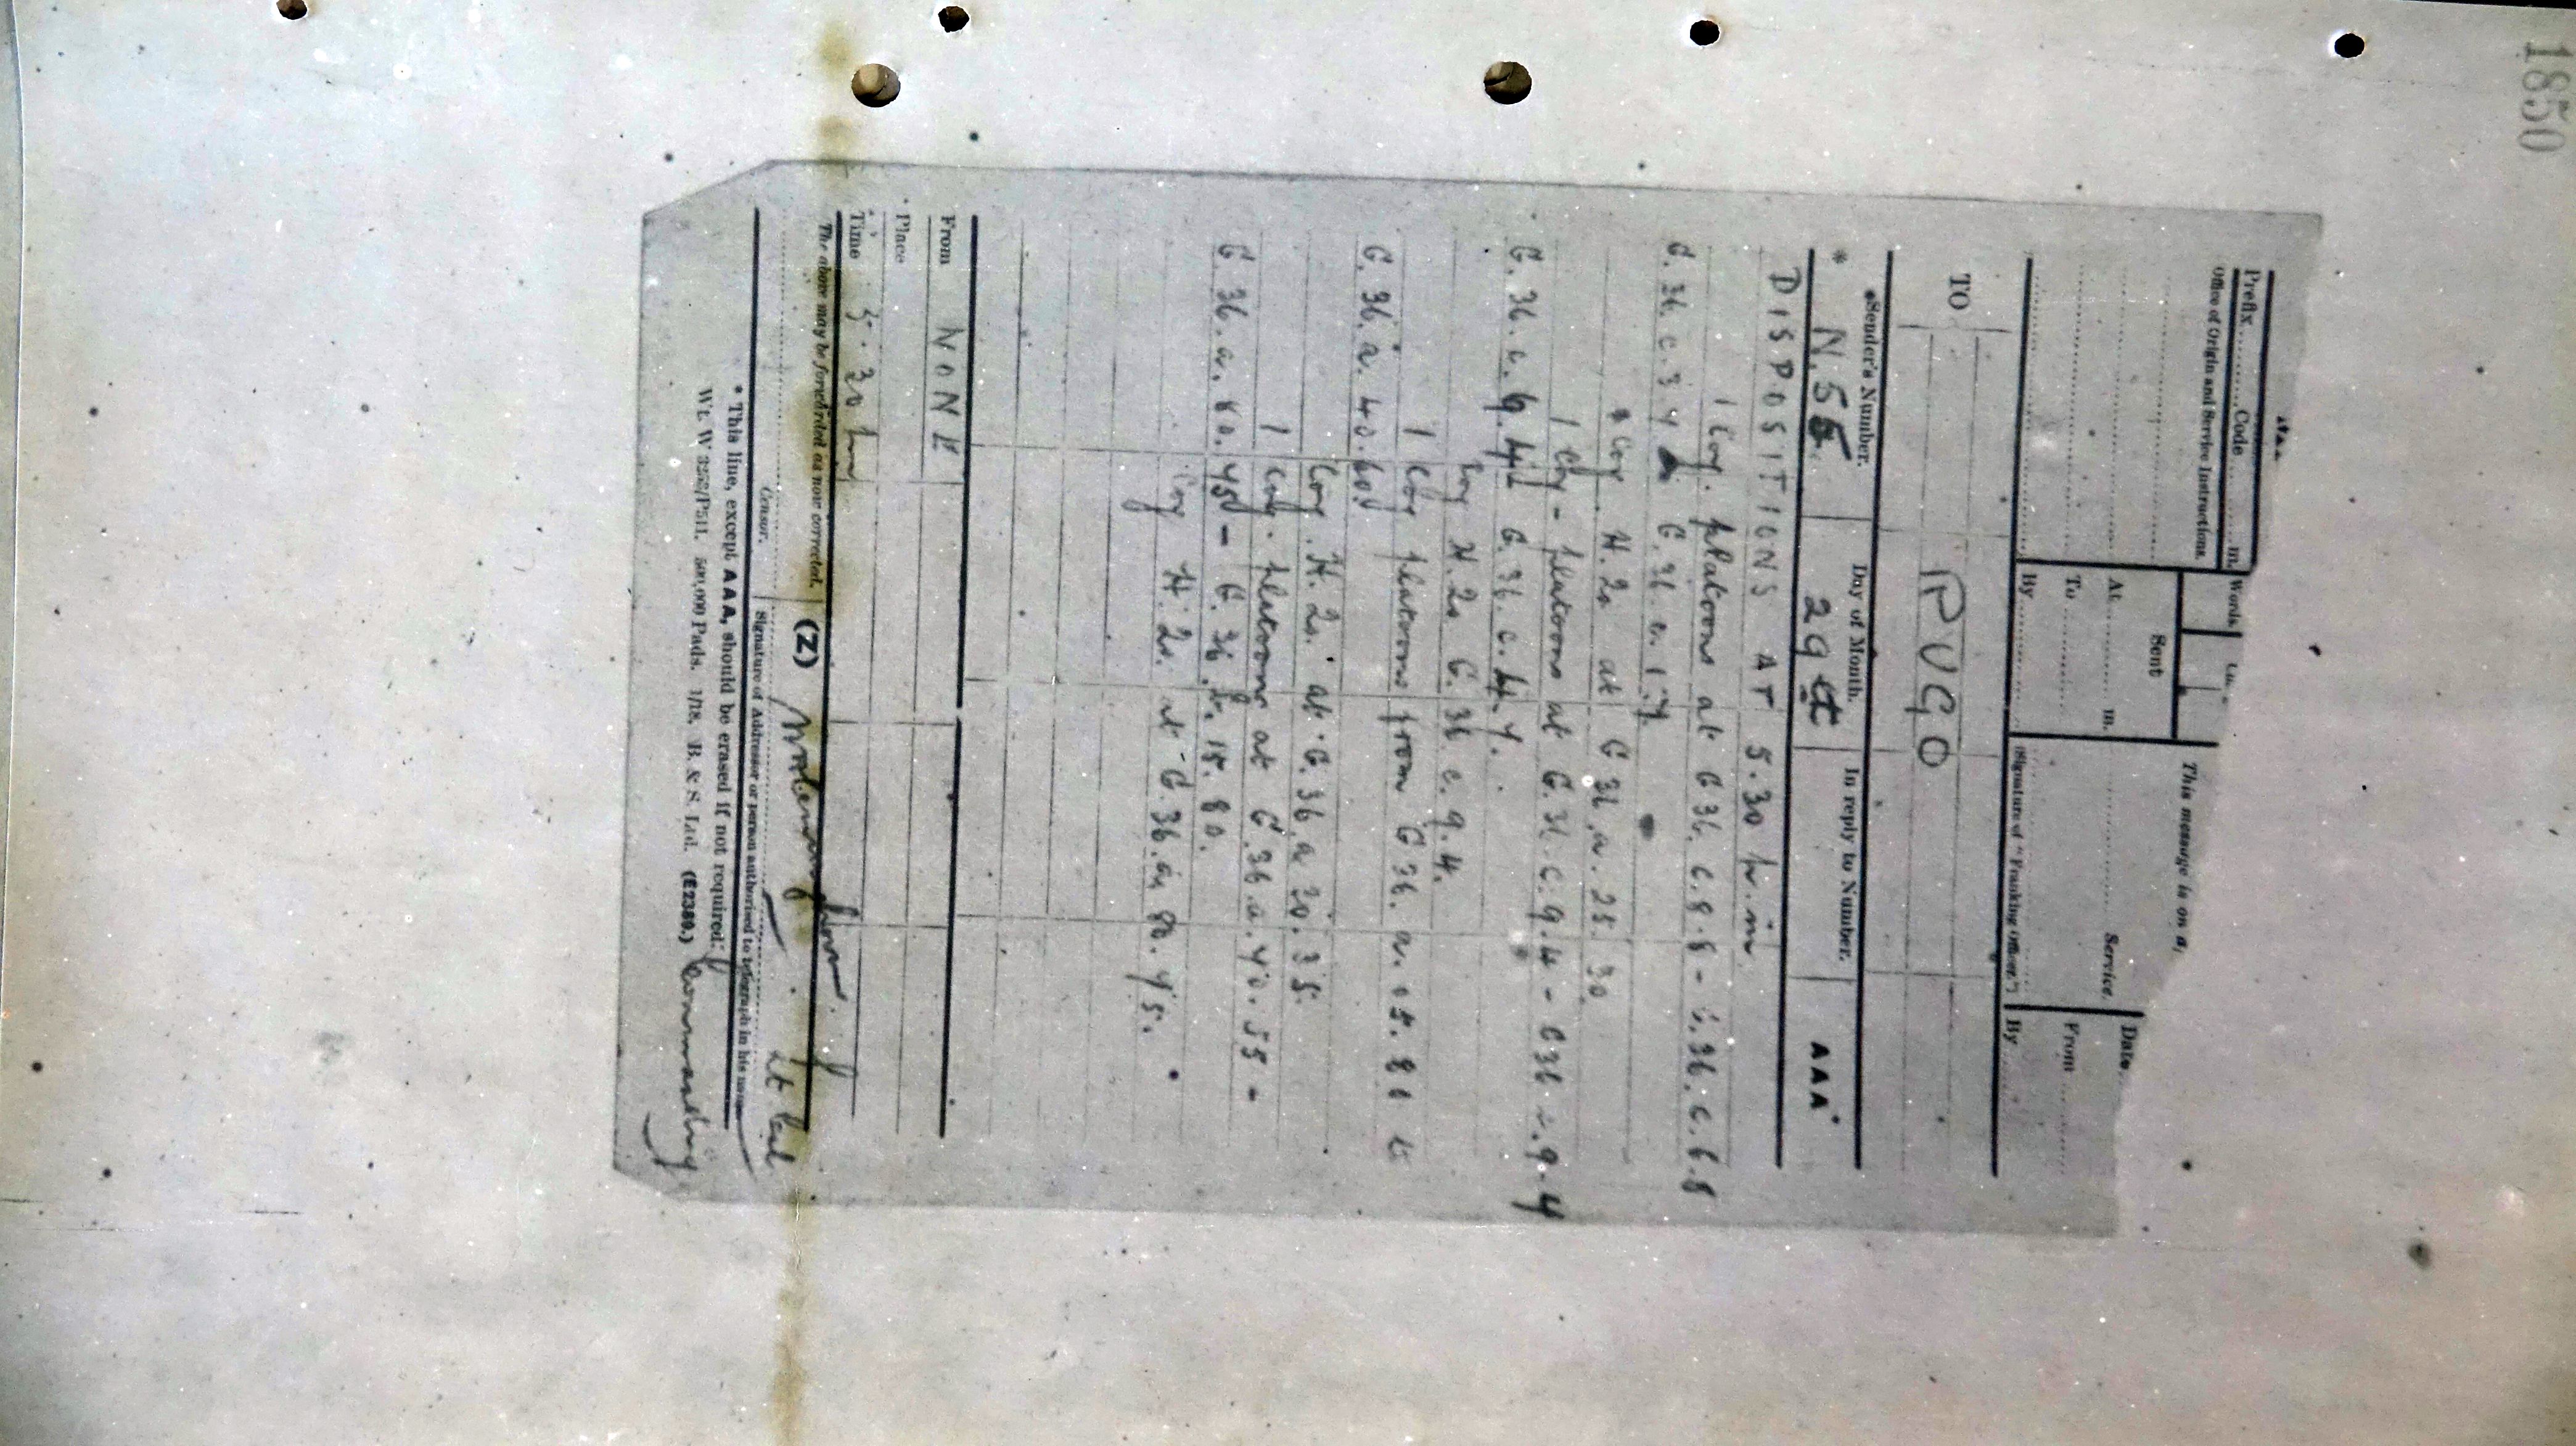 1850
Prefix.........Code.........m.
Words
Office of Origin and Service Instructions.
Sent
At.........m.
To.........
By.........
This message is on a
Service.
(Signature of "Franking Officer")
Date
From.........
By.........
TO
PUGO
*Sender's Number.
Day of Month.
In reply to Number.
AAA
* N.55
29th
DISPOSITIONS AT 5.30 p.m.
1 Coy. platoons at G 36. c. 8.8 - G.36. c. 6.8
G. 36. c. 3 7 G. 36. c. 1.7.
Coy H.Q. at G 36. a. 25. 30
1 Coy - platoons at G. 36. c. 9.4 - G36 c. 9. 4
G. 36. c. 6. 4 G. 36. c. 4. 7.
Coy H.Q. G. 36 c. 9. 4.
1 Coy platoons from G 36. a. 05. 80 to
G. 36. a. 40. 60
Coy. H.Q. at G. 36. a 30. 35.
1 Coy. platoons at G. 36 a. 40. 55 -
G. 36. a. 80. 45 - G. 36. b. 15. 80.
Coy H.Q. at G. 36. a. 80. 45.
From NONE
Place
Time 5.30 pm
The above may be forwarded as now corrected.
(Z)
Lt Col
Censor.
Signature of Addressor or person authorised to telegraph in his name
* This line, except AAA, should be erased if not required.
Commanding
Wt. W 3253/P511. 500,000 Pads. 1/18. B. & S. Ltd. (E2389.)